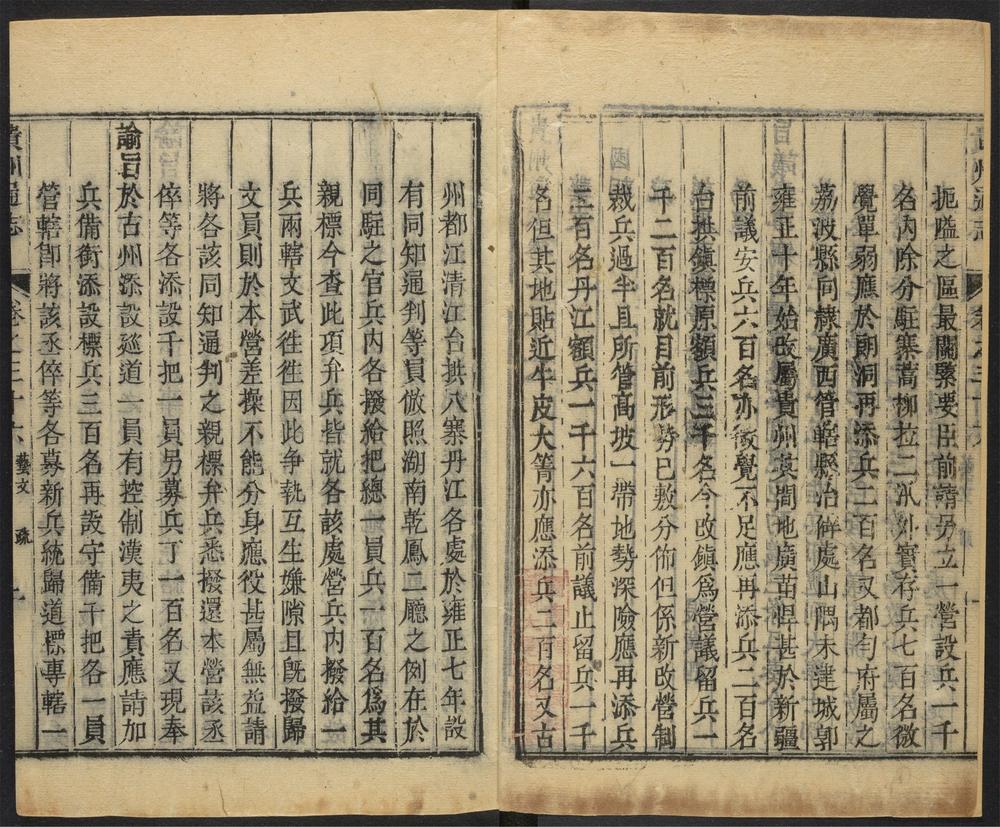 扼隘之區最關緊要臣前請另立一營設兵一千
名內除分駐寨蒿柳拉二汛外實存兵七百名微
覺單弱應於朗洞再添兵二百名又都勻府屬之
荔波縣向隸廣西管轄縣治僻處山隅未建城郭
雍正十年始改屬貴州其間地廣苗悍甚於新疆
前議安兵六百名亦微覺不足應再添兵二百名
台拱鎮標原額兵三千名今改鎮爲營議留兵一
千二百名就目前形勢已敷分佈但係新改營制
裁兵過半且所管高坡一帶地勢深險應再添兵
三百名丹江額兵一千六百名前議止留兵一千
名但其地貼近牛皮大箐亦應添兵二百名又古
州都江清江台拱八寨丹江各處於雍正七年設
有同知通判等員倣照湖南乾鳳二廳之例在於
同駐之官兵內各撥給把總一員兵一百名爲其
親標今查此項弁兵皆就各該處營兵內撥給一
兵兩轄文武往往因此爭執互生嫌隙且旣撥歸
文員則於本營差操不能分身應役甚屬無益請
將各該同知通判之親標弁兵悉撥還本營該丞
倅等各添設千把一員另募兵丁一百名又現奉
諭旨於古州添設巡道一員有控制漢夷之責應請加
兵備銜添設標兵三百名再設守備千把各一員
管轄卽將該丞倅等各募新兵統歸道標專轄一
貴州通志 卷之三十六 藝文 疏